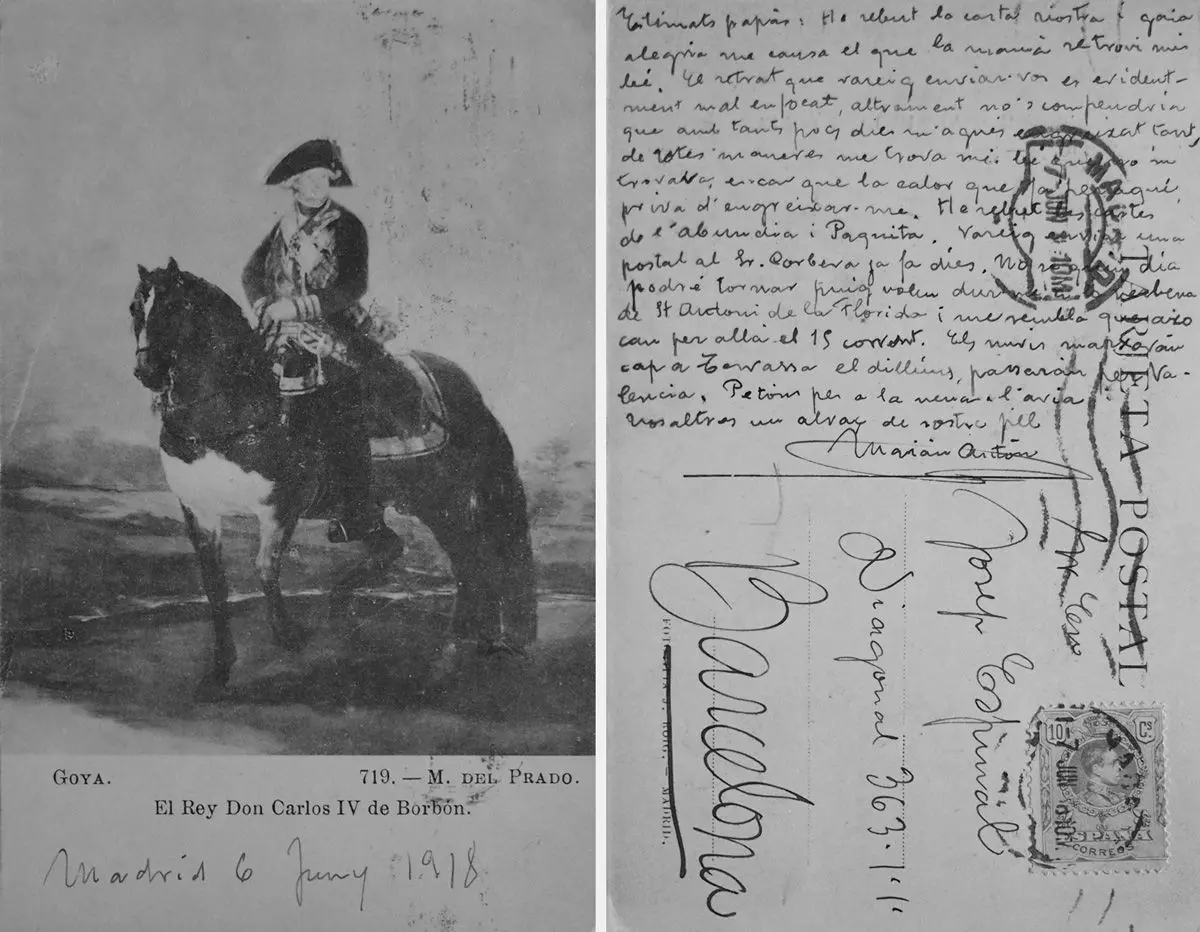 GOYA.
719. — M. DEL PRADO.
El Rey Don Carlos IV de Borbón.
Madrid 6 Juny 1918
Estimats papàs: He rebut la carta vostra i gran
alegria me causa el que la mamà se trovi més
bé. El retrat que vareig enviar-vos es evident-
ment mal enfocat, altrament no's compendria
que amb tants pocs dies m'agués engreixat tant,
de totes maneres me trova més bé que no m
trovava, encar que la calor que fa per aquí
priva d'engreixar-me. He rebut les cartes
de l'Abundia i Paquita. Vareig enviar una
postal al Sr. Corbera ja fa dies. No se quin dia
podré tornar puig volen durme a la verbena
de St Antoni de la Florida i me sembla que aixo
cau per allà el 15 corrent. Els nuvis marxarán
cap a Terrassa el dilluns, passarán per Va-
lencia. Petons per a la nena i l'avia
vosaltres un abraç de vostre fill
Marián Antón
TARJETA POSTAL
Josep Espinal
Diagonal 363-1-1
Barcelona
FOTOTIPIA J. ROIG. — MADRID.
10 Cs
CORREOS